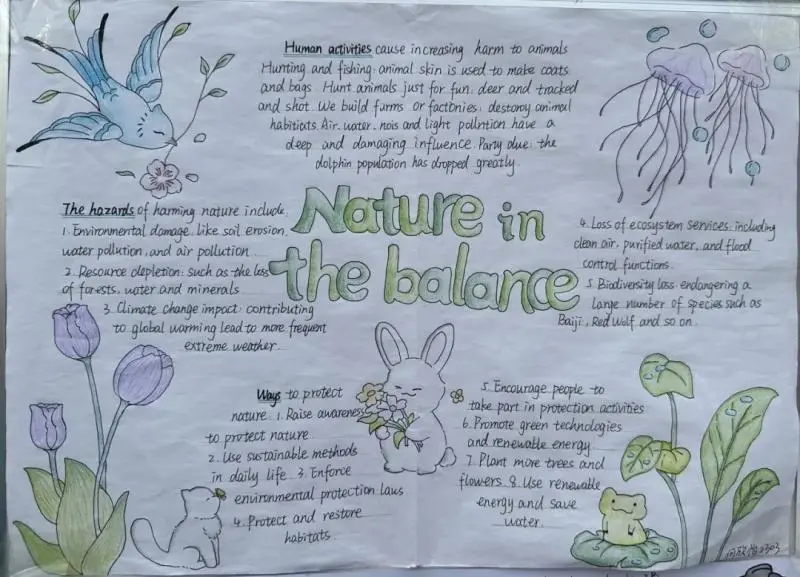 Human activities cause increasing harm to animals
Hunting and fishing: animal skin is used to make coats
and bags Hunt animals just for fun, deer and tracked
and shot. We build farms or factonies, destorey animal
habitiats. Air, water, nois and light pollntion have a
deep and damaging influence. Party due: the
dolphin population has dropped greatly.
Nature in
the balance
The hazards of harming nature include.
1. Environmental damage, like soil erosion,
water pollution, and air pollution
2. Resource depletion: such as the loss
of forests, water and minerals
3. Climate change impact: contributing
to global warming lead to more frequent
extreme weather.
4. Loss of ecosystem services: including
clean air, purified water, and flood
control functions.
5. Biodiversity loss: endangering a
large number of species such as
Baiji, Red Wolf and so on.
Ways to protect
nature 1. Raise awareness
to protect nature
2. Use sustainable methods
in daily life 3. Enforce
environmental protection laws
4. Protect and restore
habitats
5. Encourage people to
take part in protection activities
6. Promote green technologies
and renewable energy
7. Plant more trees and
flowers. 8. Use renewable
energy and save
water.